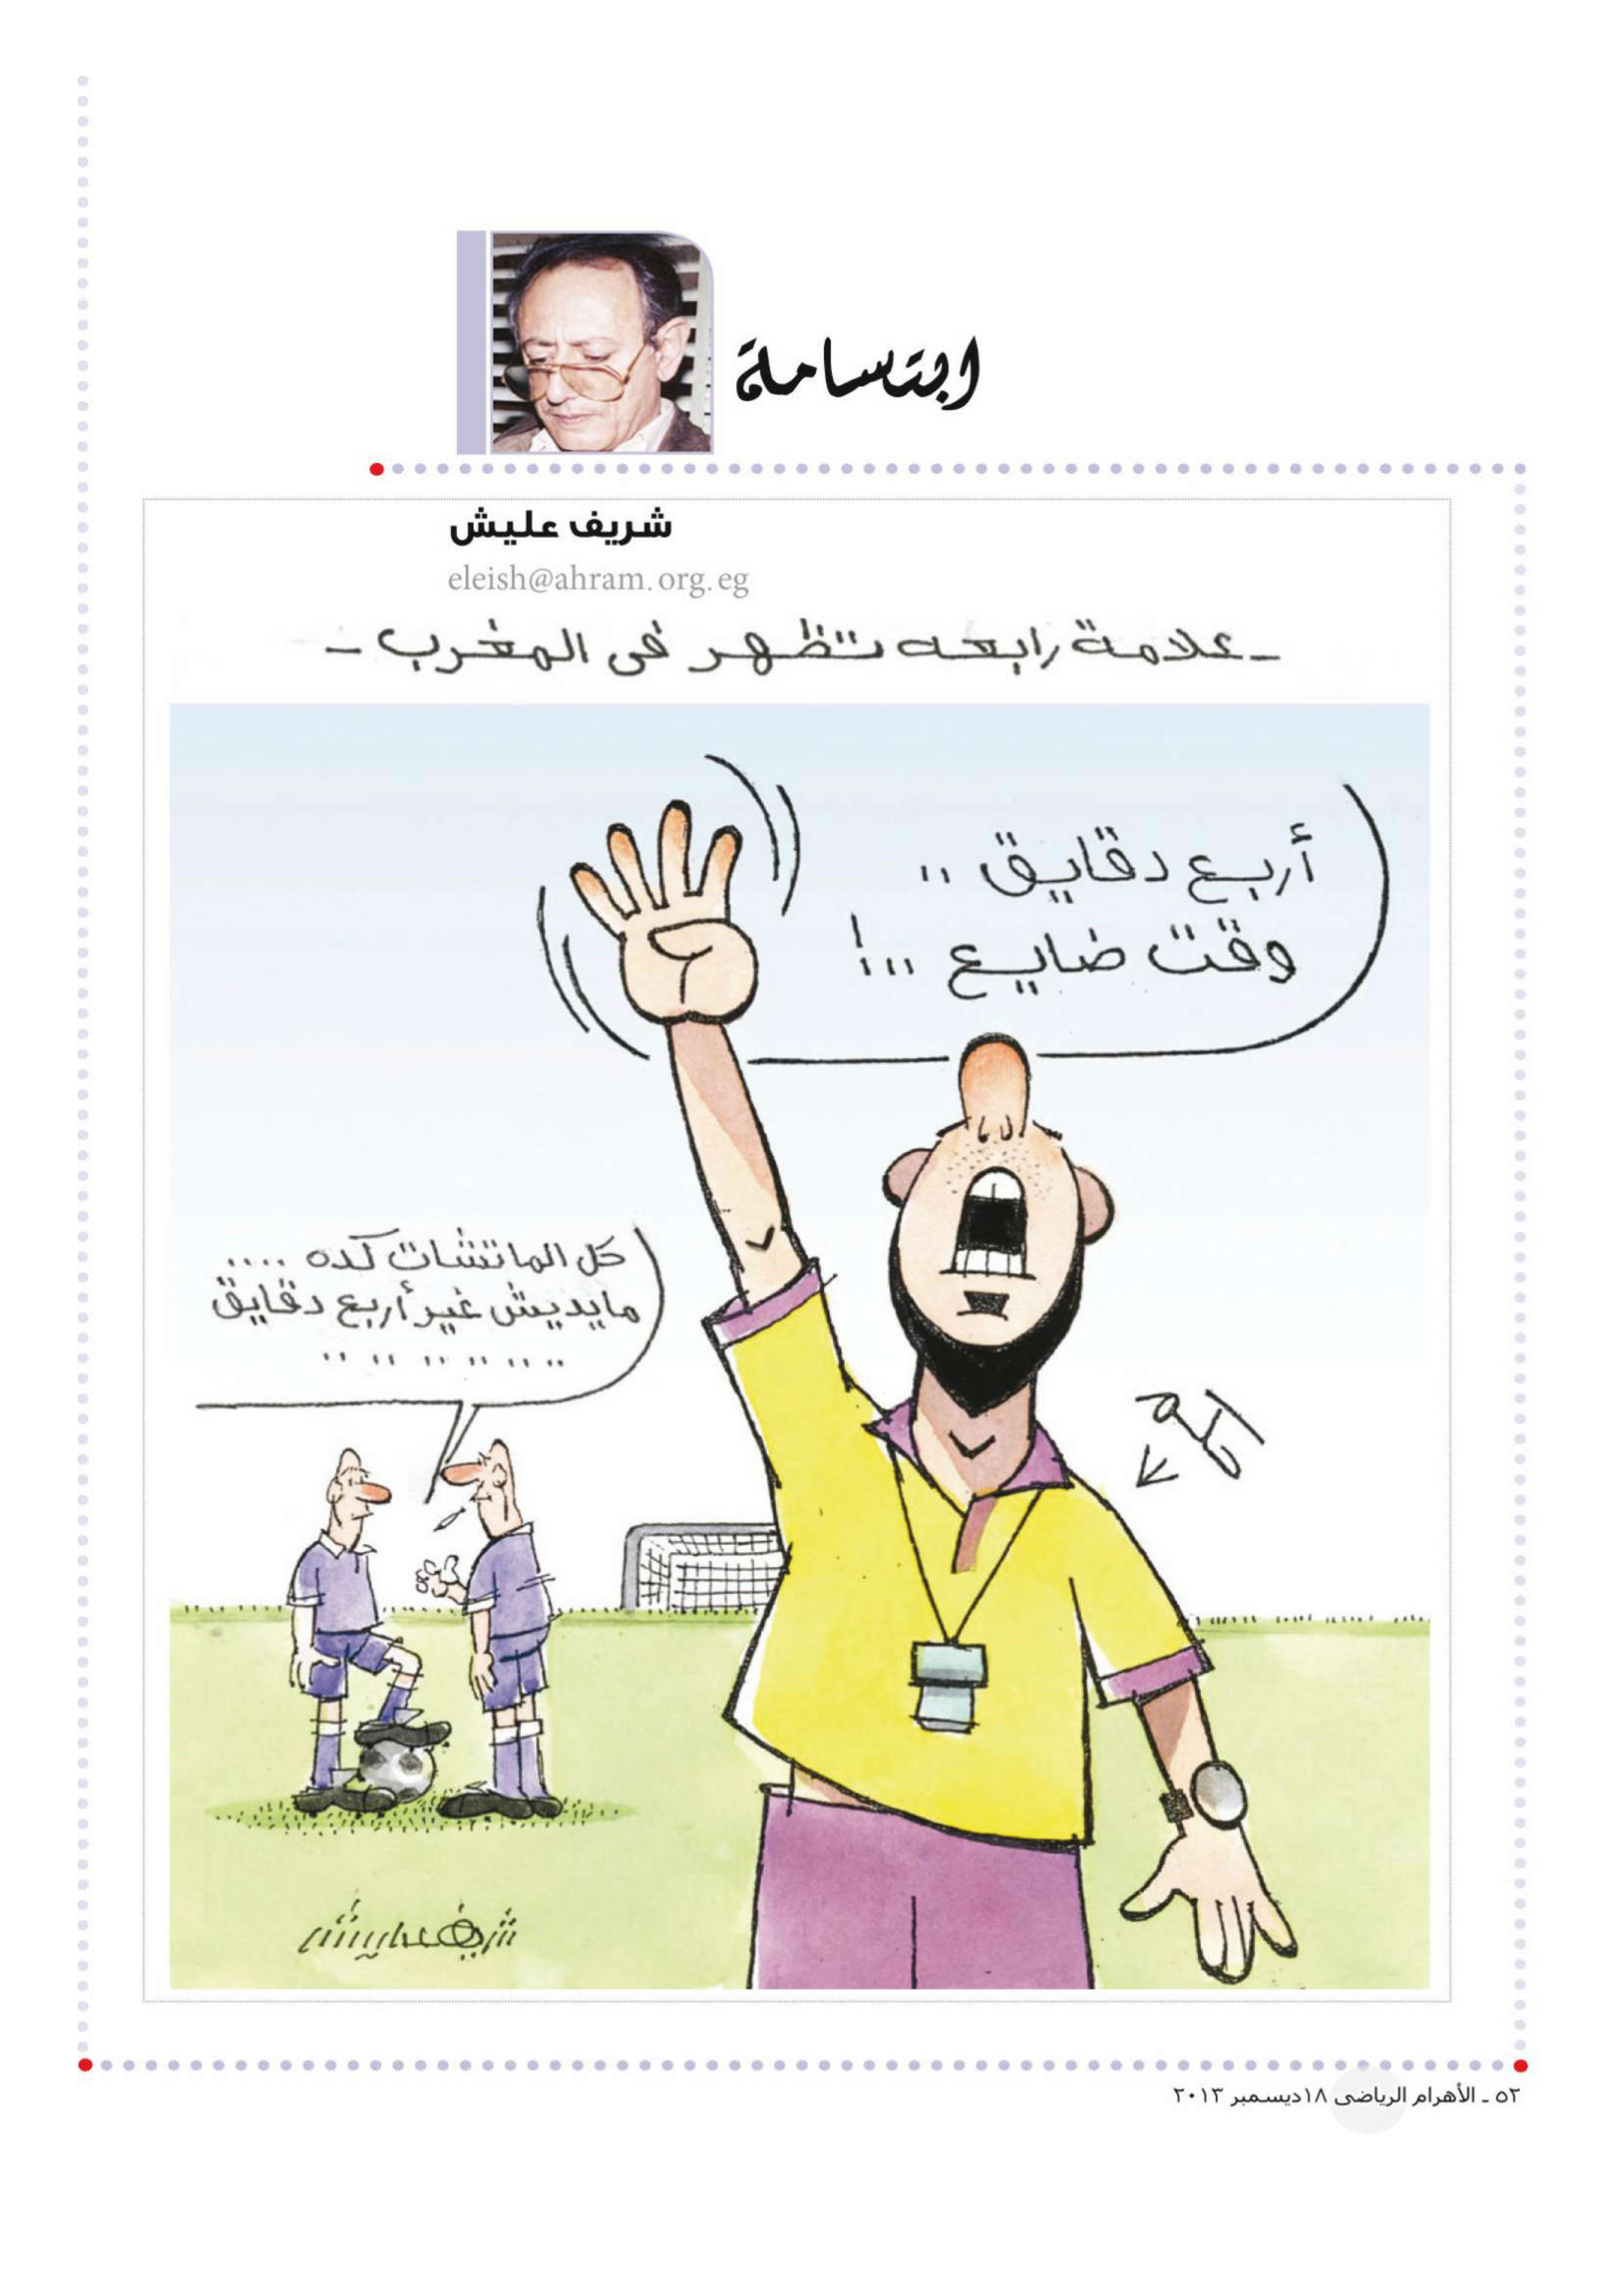 ابتسامة
شريف عليش
eleish@ahram.org.eg
ـ علامة رابعه تظهر فى المغرب ـ
أربع دقايق ..
وقت ضايع ...!
كل الماتشات كده ....
مايديش غير أربع دقايق
.. .. .. .. .. ..
حكم
شريف عليش
٥٢ ـ الأهرام الرياضى ١٨ديسمبر ٢٠١٣